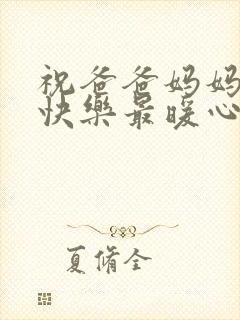 祝爸爸妈妈
快樂最暖心
夏脩全